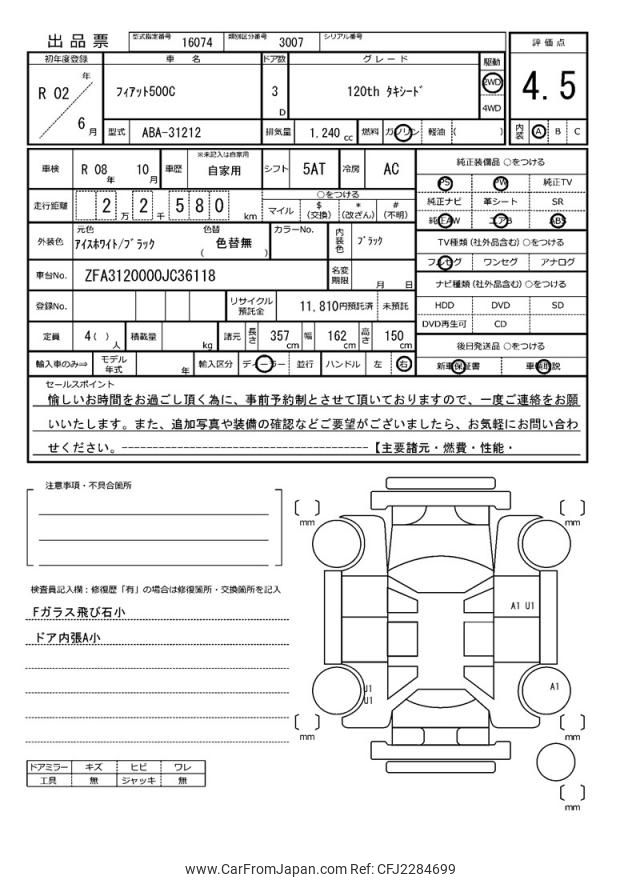 出品票 型式指定番号 16074 類別区分番号 3007 シリアル番号
評価点
4.5
内装 A B C
初年度登録 車名 ドア数 グレード 駆動
R 02 年 6 月 フィアット500C 3 D 120th タキシード 2WD 4WD
型式 ABA-31212 排気量 1.240 cc 燃料 ガソリン 軽油 ( )
車検 R 08 年 10 月 車歴 ※未記入は自家用 自家用 シフト 5AT 冷房 AC
走行距離 2 万 2 千 580 km ○をつける
マイル $ (交換) * (改ざん) # (不明)
外装色 元色 アイスホワイト/ブラック 色替 ( 色替無 ) カラーNo. 内装色 ブラック
車台No. ZFA3120000JC36118 名変期限 月 日
登録No. リサイクル預託金 11,810円預託済 未預託
定員 4( ) 人 積載量 kg 諸元 長さ 357 cm 幅 162 cm 高さ 150 cm
輸入車のみ⇒ モデル年式 年 輸入区分 ディーラー 並行 ハンドル 左 右
純正装備品 ○をつける
PS PW 純正TV
純正ナビ 革シート SR
純正AW エアB ABS
TV種類 (社外品含む) ○をつける
フルセグ ワンセグ アナログ
ナビ種類 (社外品含む) ○をつける
HDD DVD SD
DVD再生可 CD
後日発送品 ○をつける
新車保証書 車輌取説
セールスポイント
愉しいお時間をお過ごし頂く為に、事前予約制とさせて頂いておりますので、一度ご連絡をお願
いいたします。また、追加写真や装備の確認などご要望がございましたら、お気軽にお問い合わ
せください。----------------------------------------【主要諸元・燃費・性能・
注意事項・不具合箇所
検査員記入欄：修復歴「有」の場合は修復箇所・交換箇所を記入
Fガラス飛び石小
ドア内張A小
ドアミラー キズ ヒビ ワレ
工具 無 ジャッキ 無
mm
mm
A1 U1
U1
U1
A1
mm
mm
mm
www.CarFromJapan.com Ref: CFJ2284699